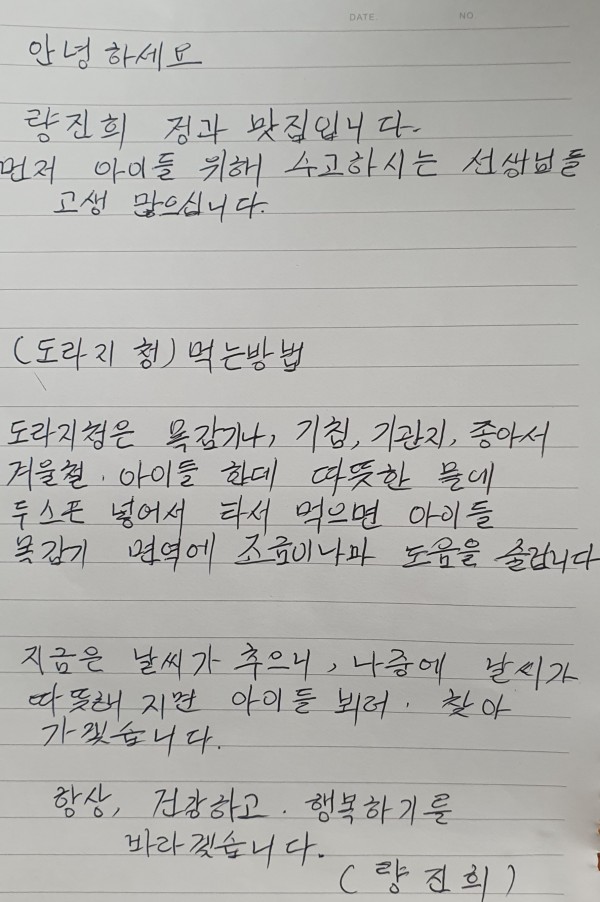 DATE. NO.
안녕하세요
량진희 정과 맛집입니다.
먼저 아이들 위해 수고하시는 선생님들
고생 많으십니다.
(도라지 청) 먹는방법
도라지청은 목감기나, 기침, 기관지, 좋아서
겨울철. 아이들 한데 따뜻한 물에
두스푼 넣어서 타서 먹으면 아이들
목감기 면역에 조금이나마 도움을 줄겁니다
지금은 날씨가 추으니, 나중에 날씨가
따뜻해 지면 아이들 뵈러. 찾아
가겠습니다.
항상, 건강하고. 행복하기를
바라겠습니다.
(량진희)